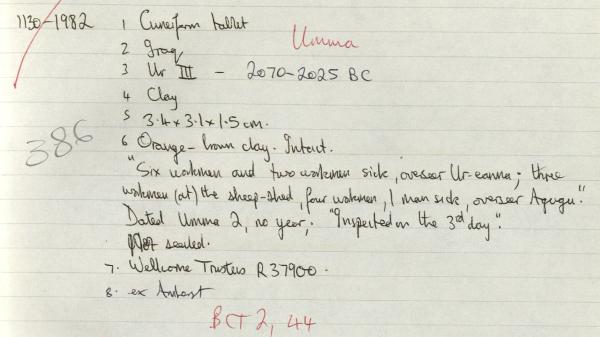 1130-1982 1 Cuneiform tablet
Umma
2 Iraq
3 Ur III - 2070-2025 BC
4 Clay
5 3.4 x 3.1 x 1.5 cm.
386
6 Orange-brown clay. Intact.
"Six workmen and two workmen sick, overseer Ur-eanna; three
workmen (at) the sheep-shed, four workmen, 1 man sick, overseer Agugu."
Dated Umma 2, no year; "Inspected on the 3rd day".
Not sealed.
7. Wellcome Trustees R37900.
8. ex Amherst
BCT 2, 44